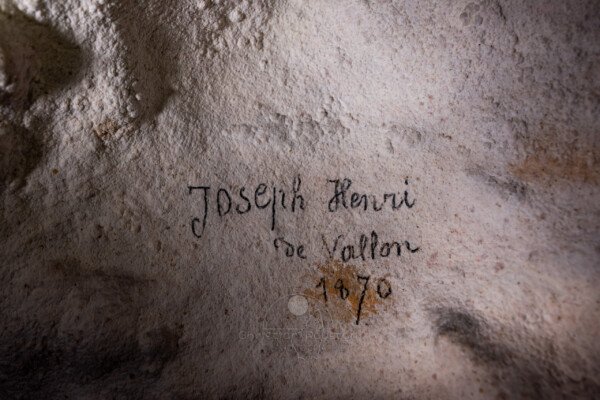 Joseph Henri
de Vallon
1870